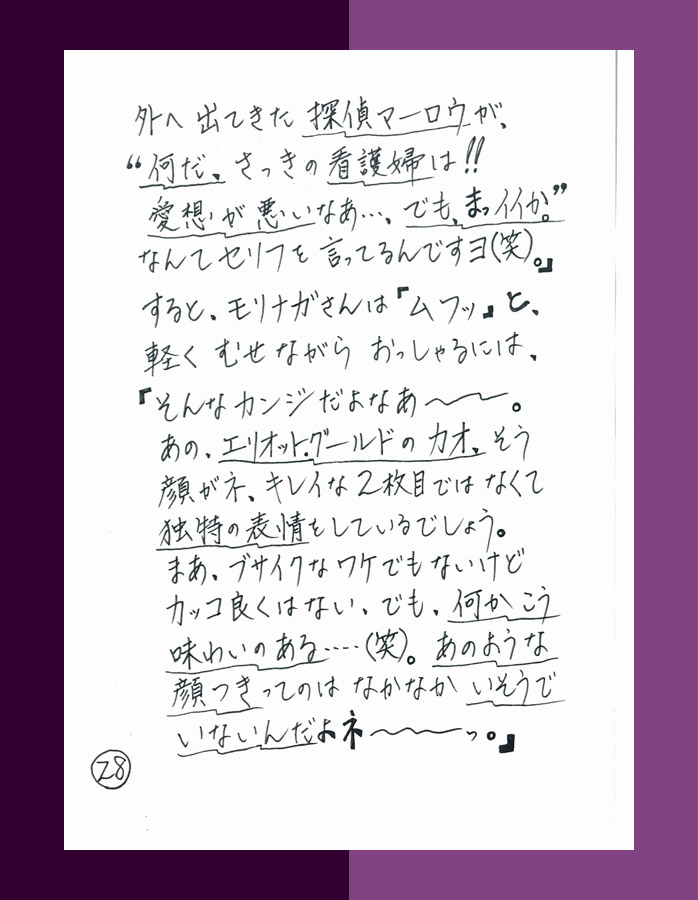 外へ出てきた探偵マーロウが、
“何だ、さっきの看護婦は!!
愛想が悪いなあ…、でも、まっイイか。”
なんてセリフを言ってるんですヨ(笑)。』
すると、モリナガさんは『ムフッ』と、
軽くむせながらおっしゃるには、
『そんなカンジだよなあ〜〜。
あの、エリオット・グールドのカオ、そう
顔がネ、キレイな2枚目ではなくて
独特の表情をしているでしょう。
まあ、ブサイクなワケでもないけど
カッコ良くはない、でも、何かこう
味わいのある‥‥(笑)。あのような
顔つきってのはなかなかいそうで
いないんだよネ〜〜〜っ。』
28